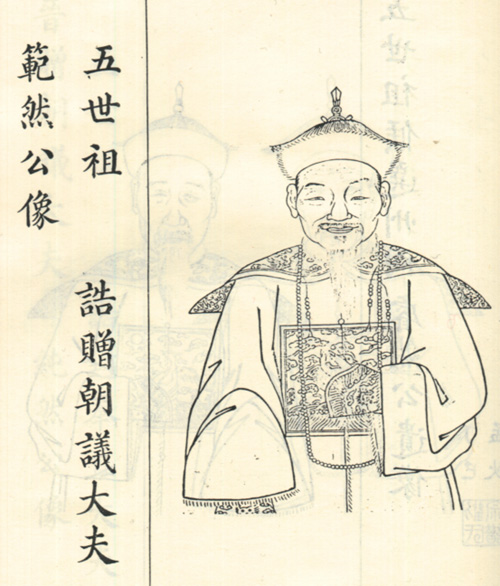 五世祖 誥贈朝議大夫
範然公像